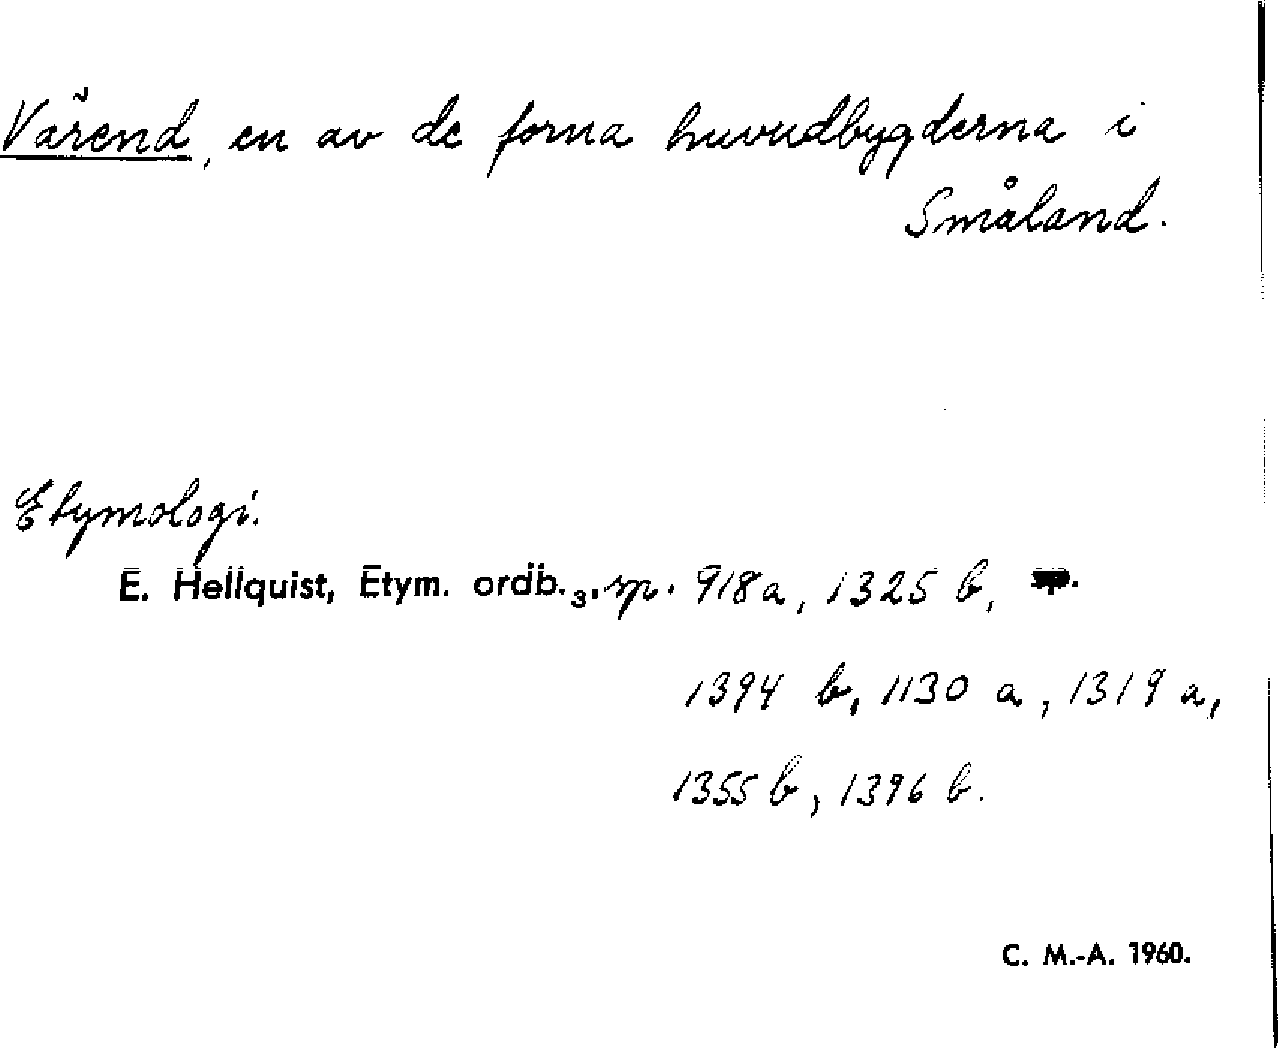 Värend, en av de forna huvudbygderna i
Småland.
Etymologi.
E. Hellquist, Etym. ordb.₃, sp. 918a, 1325 b, sp.
1394 b, 1130 a, 1319 a,
1355 b, 1396 b.
C. M.-A. 1960.